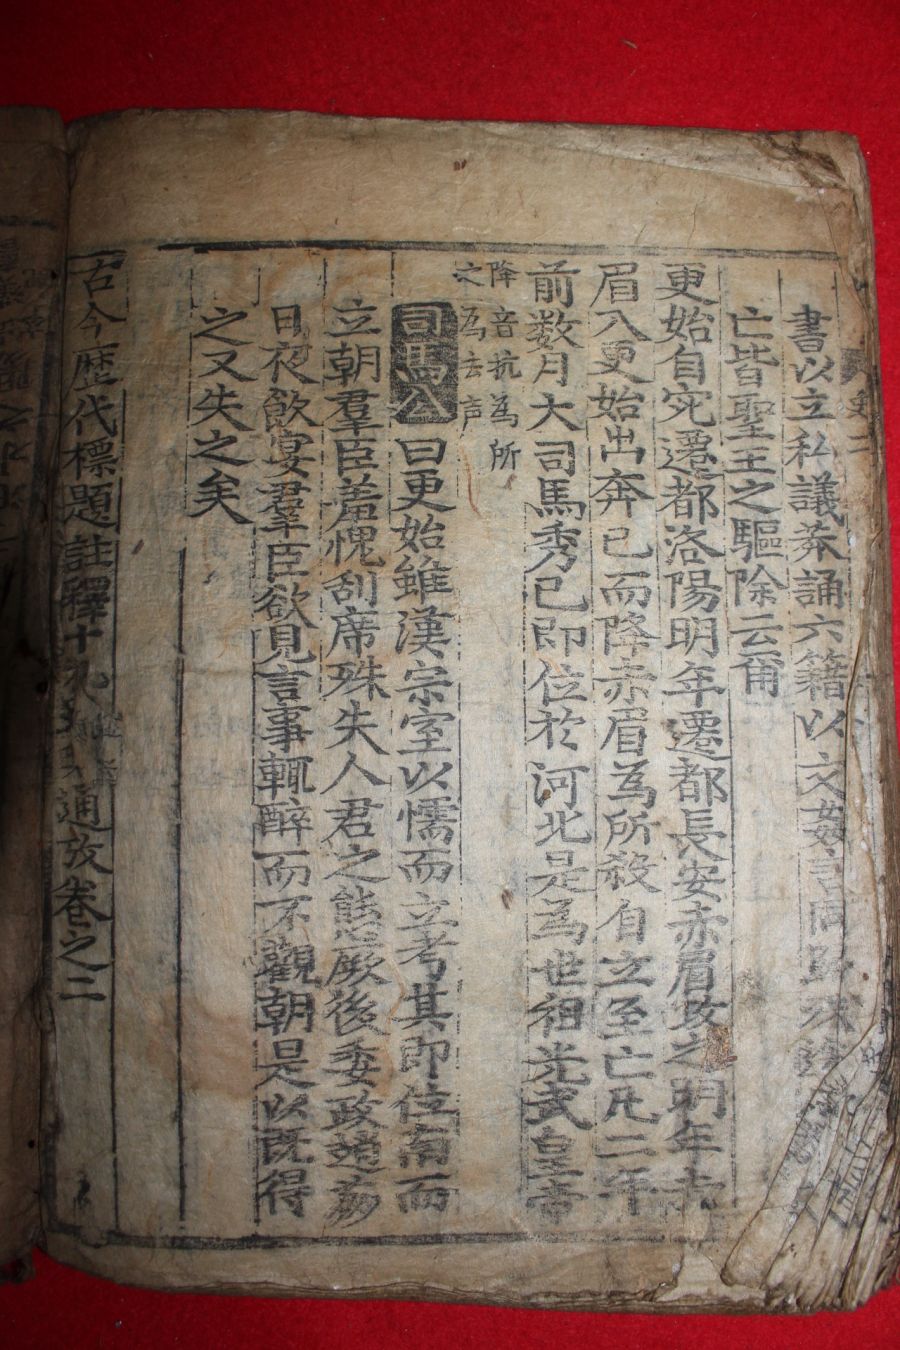 書以立私議莽誦六籍以文姦言同歸殊塗
亡皆聖王之驅除云甫
更始自宛遷都洛陽明年遷都長安赤眉攻之明年赤
眉入更始出奔已而降赤眉為所殺自立至亡凡二年
降音抗為所
之為去声
前数月大司馬秀已即位於河北是為世祖光武皇帝
司馬公曰更始雖漢宗室以懦而立考其即位南面
立朝羣臣羞愧刮席殊失人君之態厥後委政趙萠
日夜飲宴羣臣欲見言事輒醉而不觀朝是以既得
之又失之矣
古今歷代標題註釋十九史略通攷卷之二